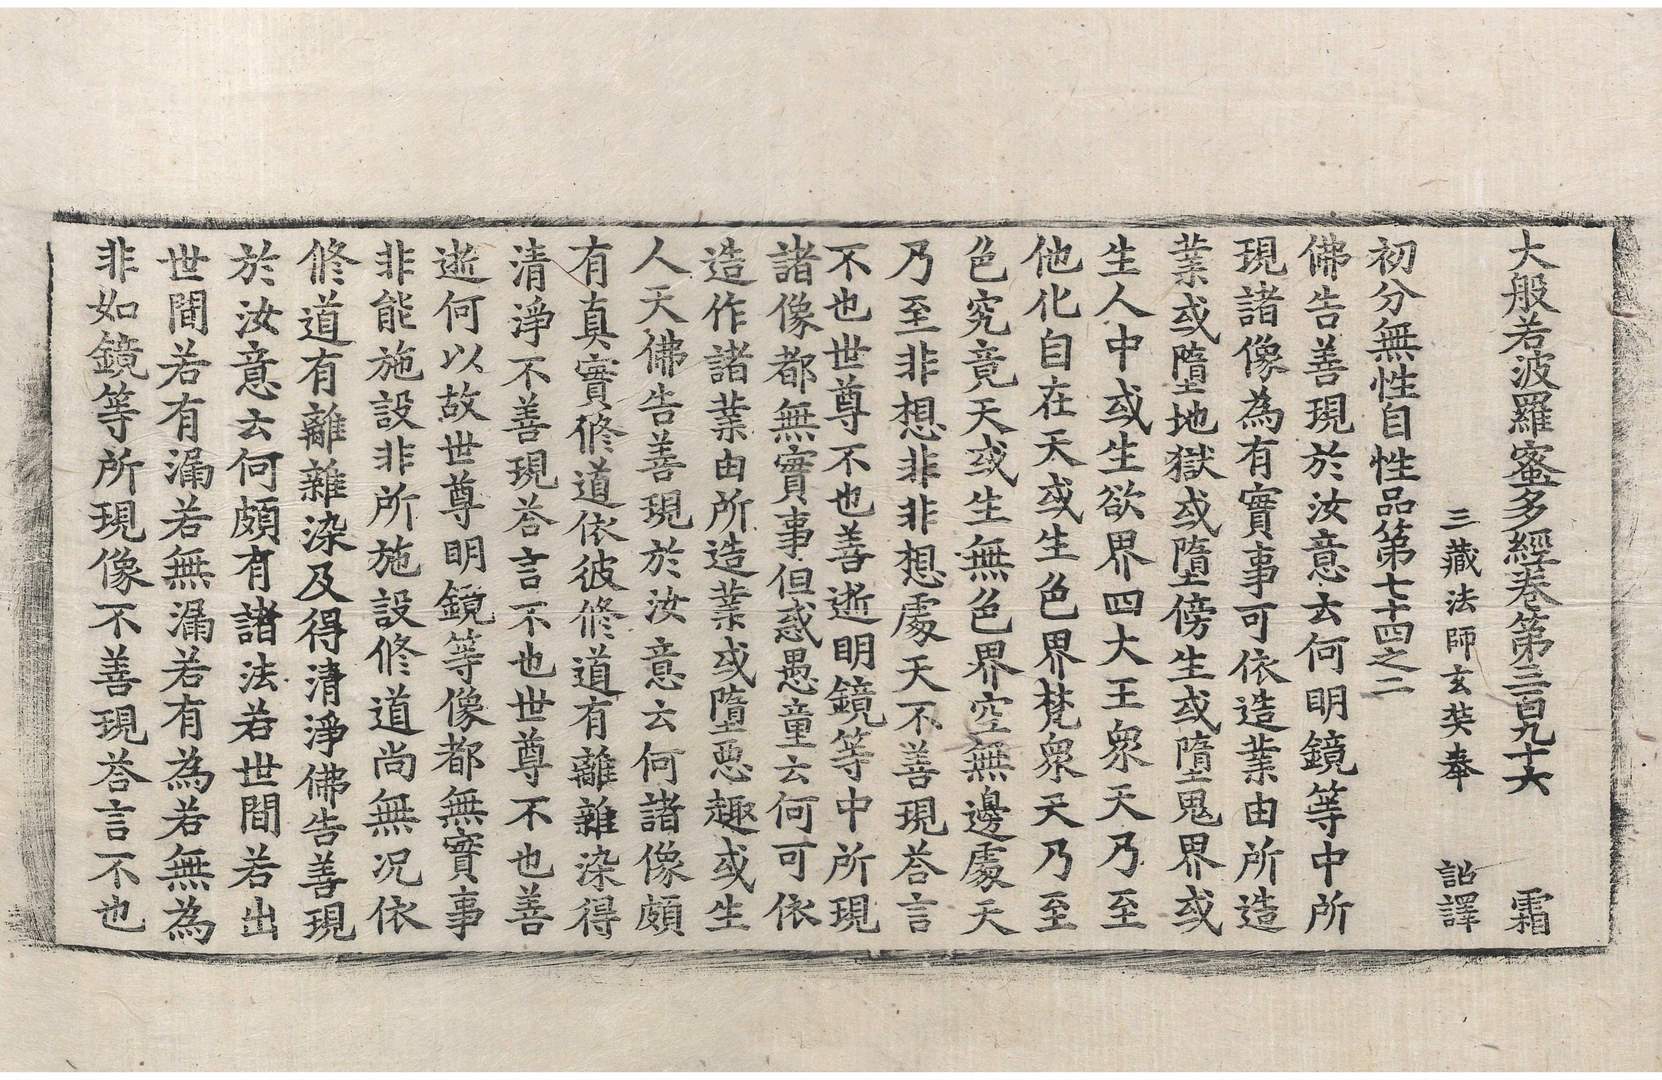 大般若波羅蜜多經卷第三百九十六 霜
三藏法師玄奘奉 詔譯
初分無性自性品第七十四之二
佛告善現於汝意云何明鏡等中所
現諸像為有實事可依造業由所造
業或墮地獄或墮傍生或墮鬼界或
生人中或生欲界四大王衆天乃至
他化自在天或生色界梵衆天乃至
色究竟天或生無色界空無邊處天
乃至非想非非想處天不善現荅言
不也世尊不也善逝明鏡等中所現
諸像都無實事但惑愚童云何可依
造作諸業由所造業或墮惡趣或生
人天佛告善現於汝意云何諸像頗
有真實修道依彼修道有離雜染得
清淨不善現荅言不也世尊不也善
逝何以故世尊明鏡等像都無實事
非能施設非所施設修道尚無況依
修道有離雜染及得清淨佛告善現
於汝意云何頗有諸法若世間若出
世間若有漏若無漏若有為若無為
非如鏡等所現像不善現荅言不也